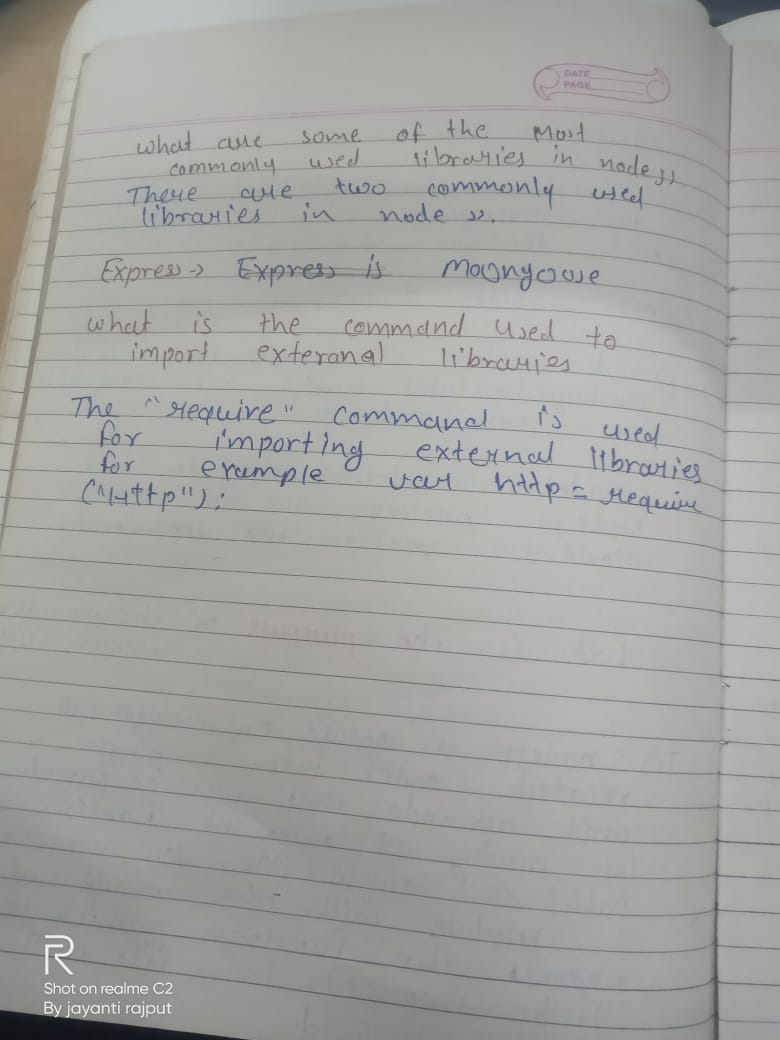 DATE
PAGE
what are some of the most
commonly used libraries in nodejs
There are two commonly used
libraries in node js.
Express → Express is Moongouse
what is the command used to
import exteranal libraries
The "require" command is used
for importing external libraries
for example var http = require
("Http");
R
Shot on realme C2
By jayanti rajput